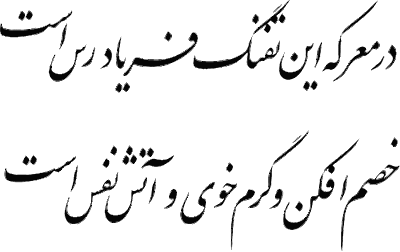 در معرکه این تفنگ فریاد رس است
خصم افکن و گرم خوی و آتش نفس است